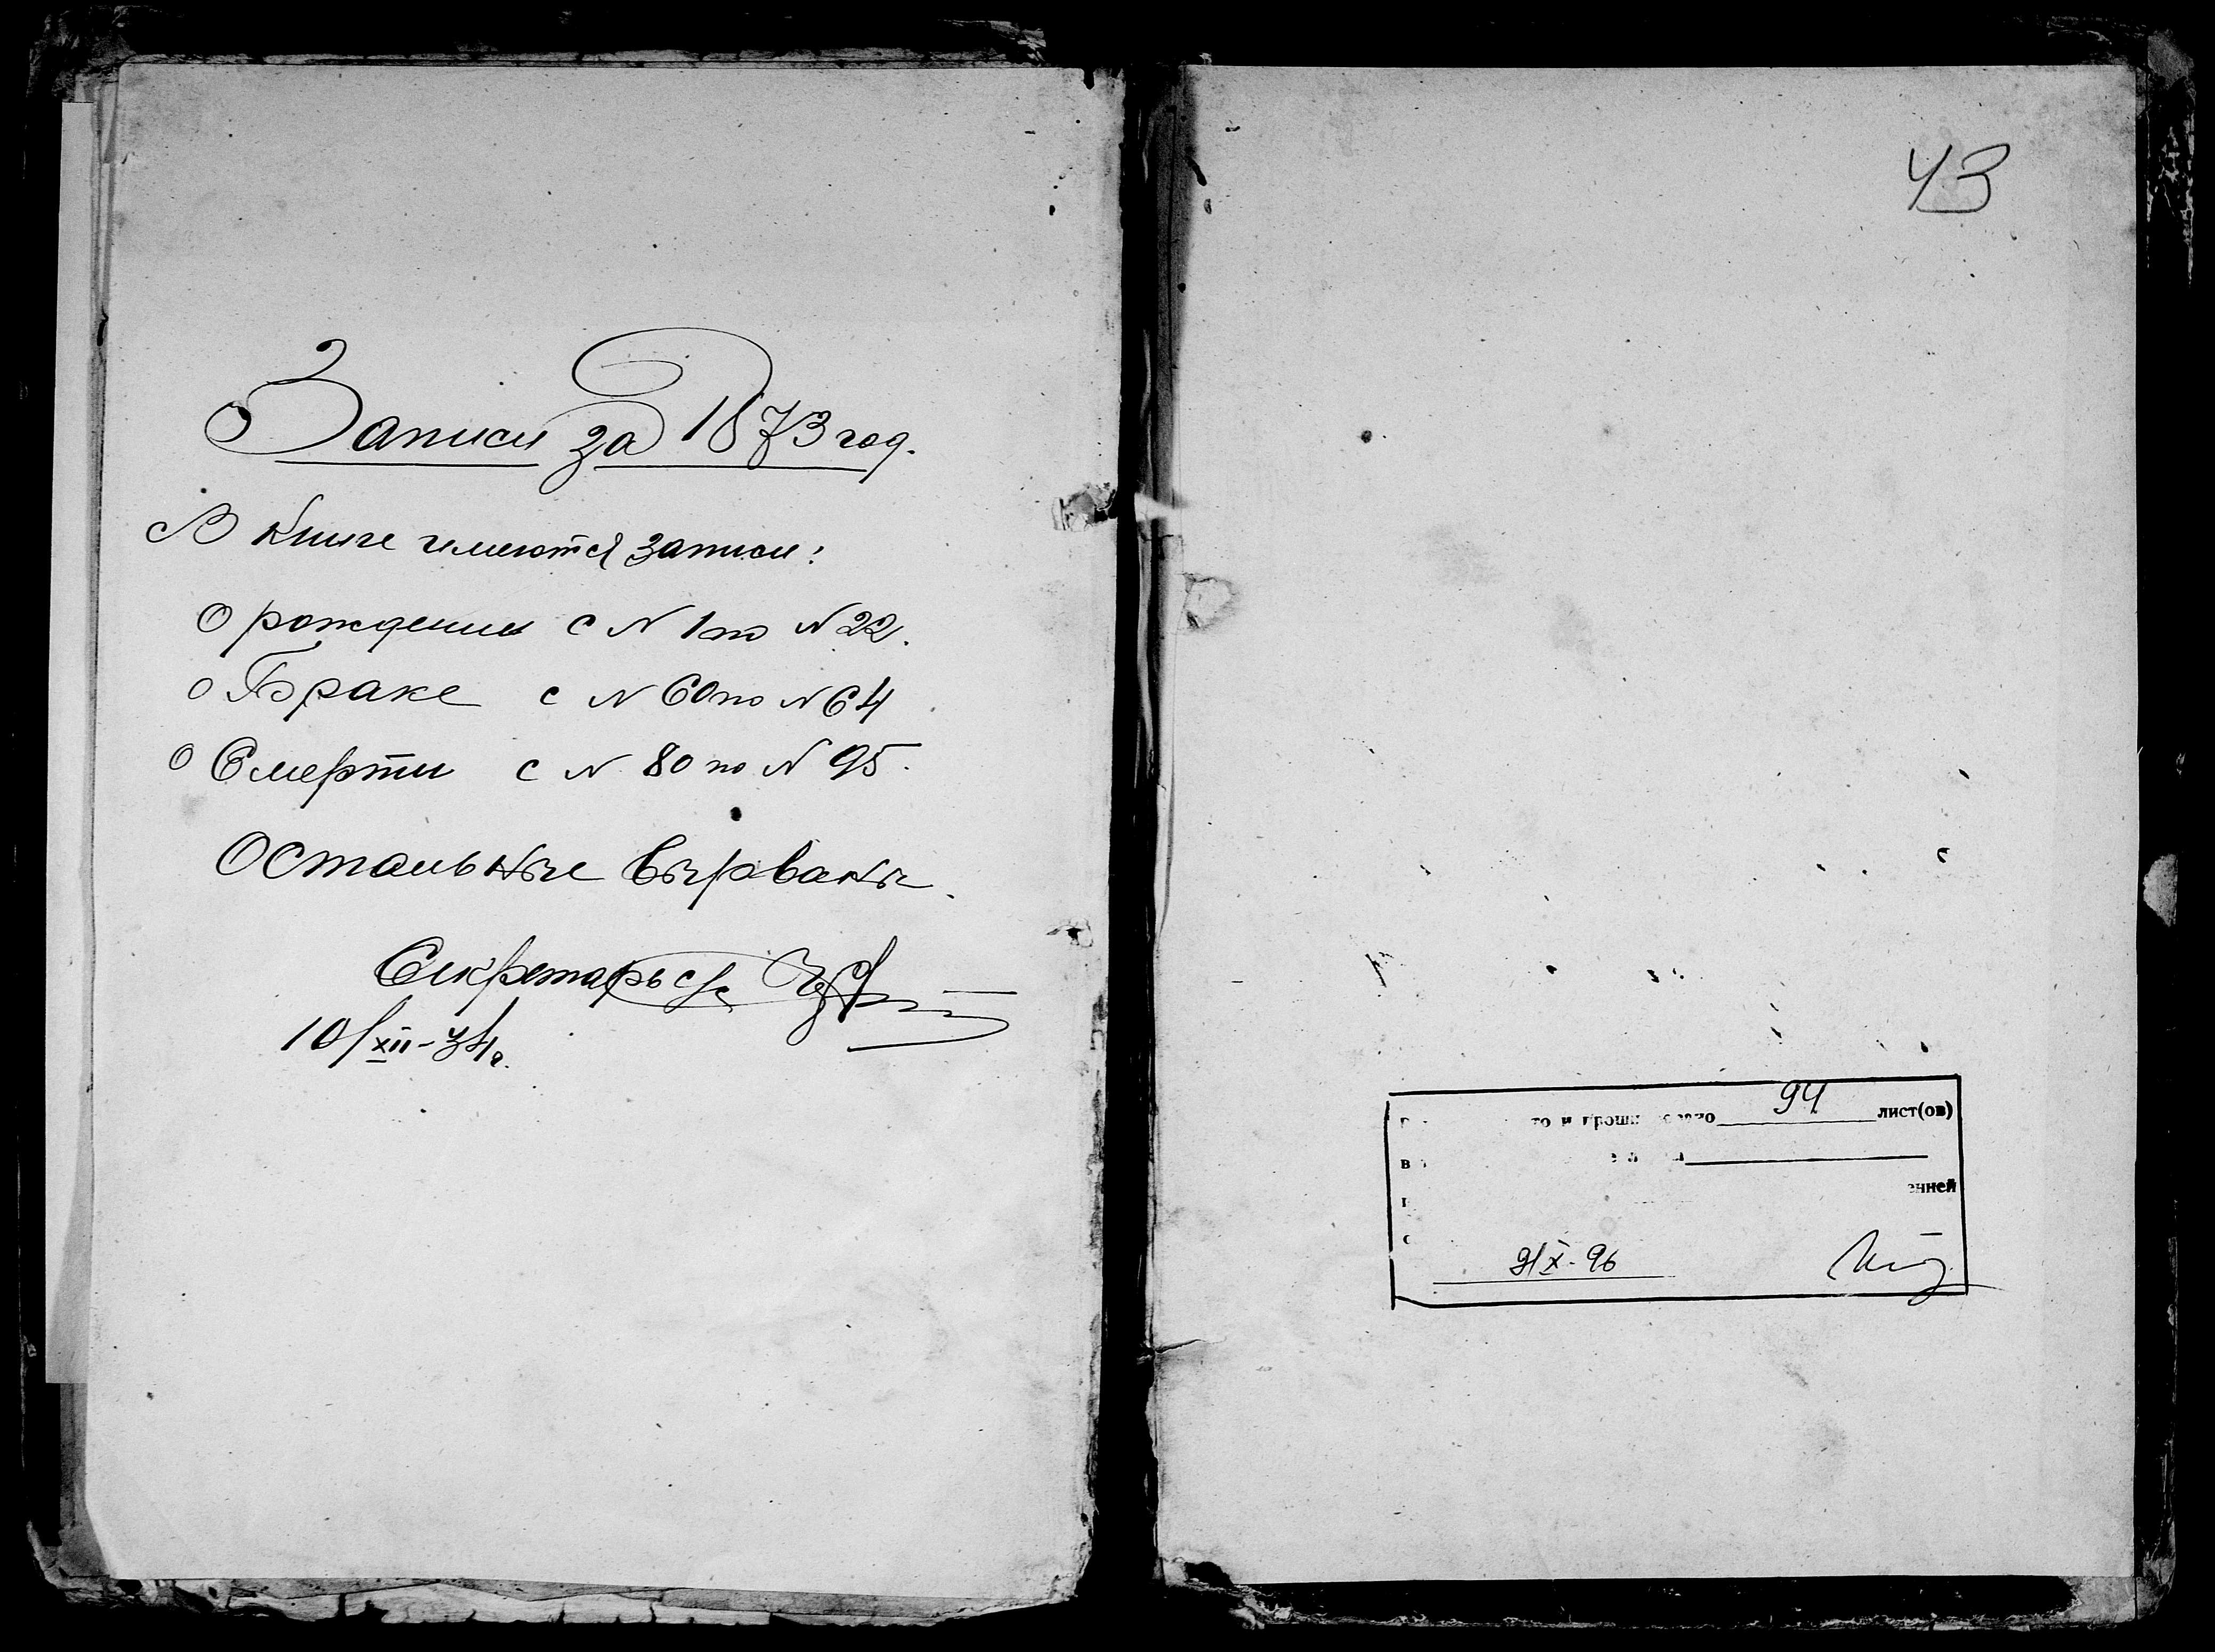 Записи за 1873 год.
В книге имеются записи:
О рождении с N 1 по N 22.
о Браке с N 60 по N 64
о Смерти с N 80 по N 95.
Остальные вырваны.
Секретарь с/с
10/XII-34г.
43
94 лист(ов)
в
енней
9/X-96